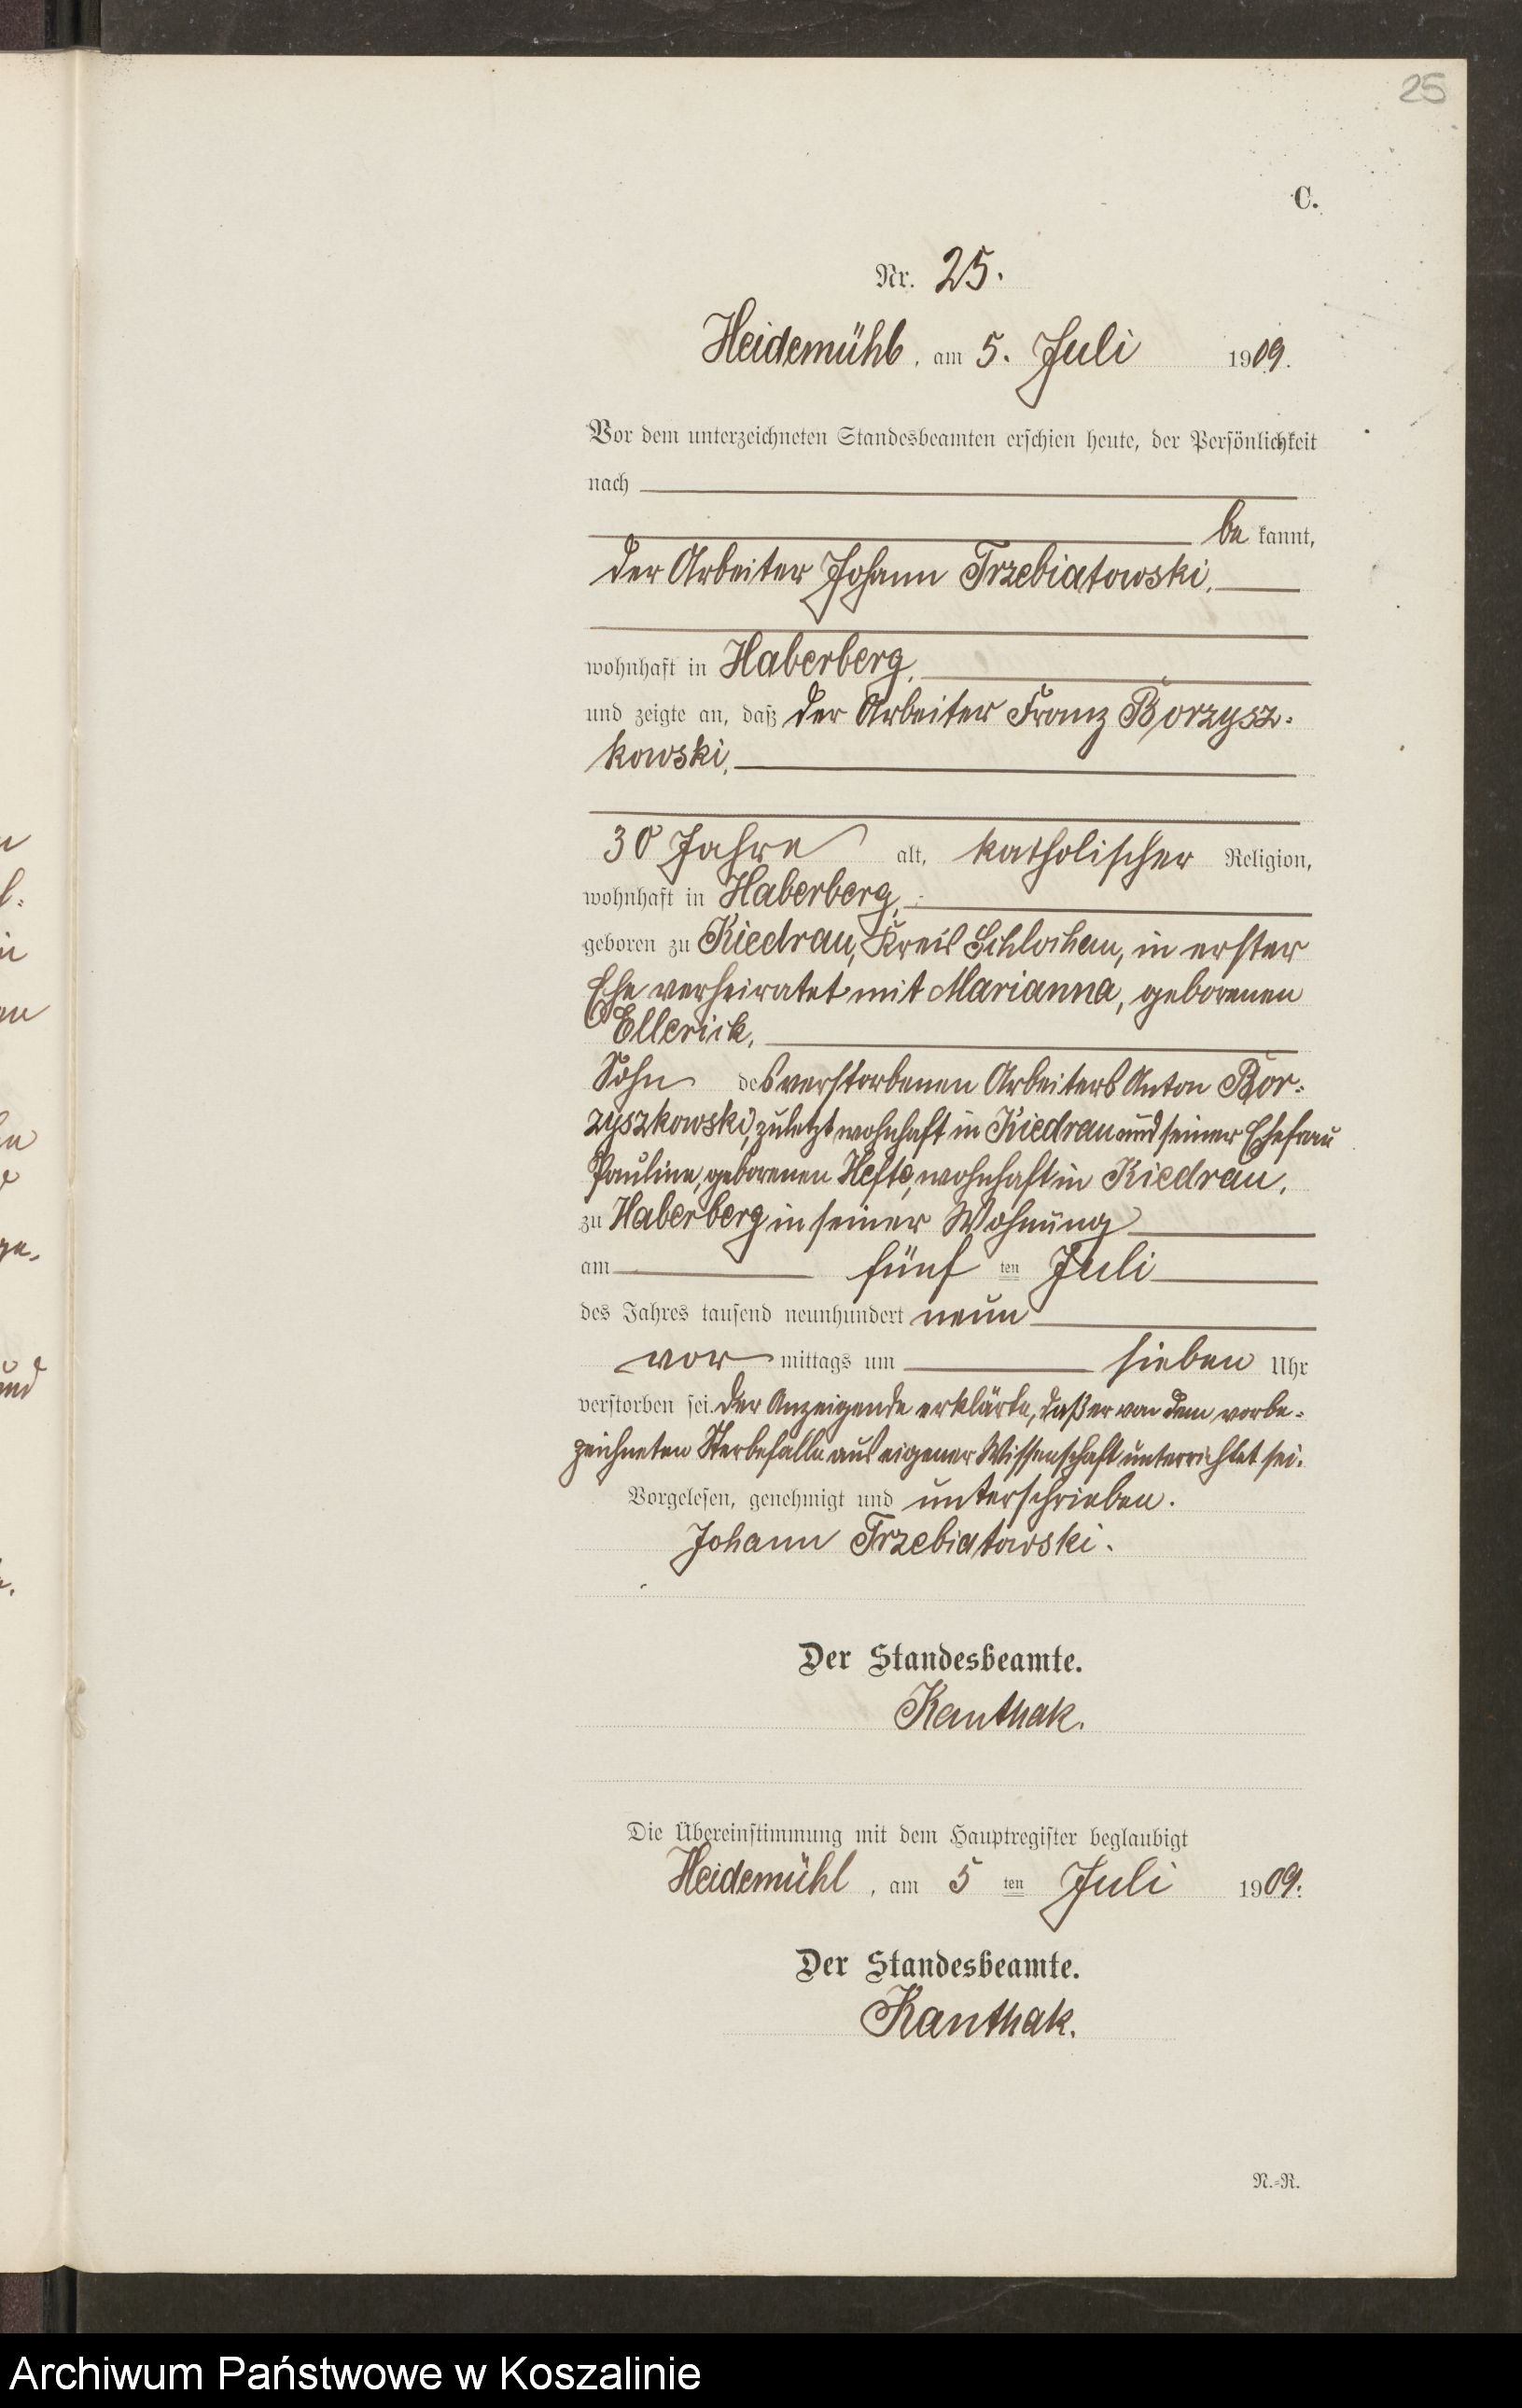 25
C.
Nr. 25.
Heidemühl, am 5. Juli 1909.
Vor dem unterzeichneten Standesbeamten erschien heute, der Persönlichkeit
nach
be kannt,
der Arbeiter Johann Trzebiatowski,
wohnhaft in Haberberg,
und zeigte an, daß der Arbeiter Franz Borzysz-
kowski,
30 Jahre alt, katholischer Religion,
wohnhaft in Haberberg,
geboren zu Kiedrau, Kreis Schlochau, in erster
Ehe verheiratet mit Marianna, geborenen
Ellerick,
Sohn des verstorbenen Arbeiters Anton Bor-
zyszkowski, zuletzt wohnhaft in Kiedrau und seiner Ehefrau
Pauline, geborenen Hefte, wohnhaft in Kiedrau,
zu Haberberg in seiner Wohnung
am fünf ten Juli
des Jahres tausend neunhundert neun
vor mittags um sieben Uhr
verstorben sei. Der Anzeigende erklärte, daß er von dem vorbe-
zeichneten Sterbefalle aus eigener Wissenschaft unterrichtet sei.
Vorgelesen, genehmigt und unterschrieben.
Johann Trzebiatowski.
Der Standesbeamte.
Kanthak.
Die Übereinstimmung mit dem Hauptregister beglaubigt
Heidemühl, am 5 ten Juli 1909.
Der Standesbeamte.
Kanthak.
N.-R.
Archiwum Państwowe w Koszalinie